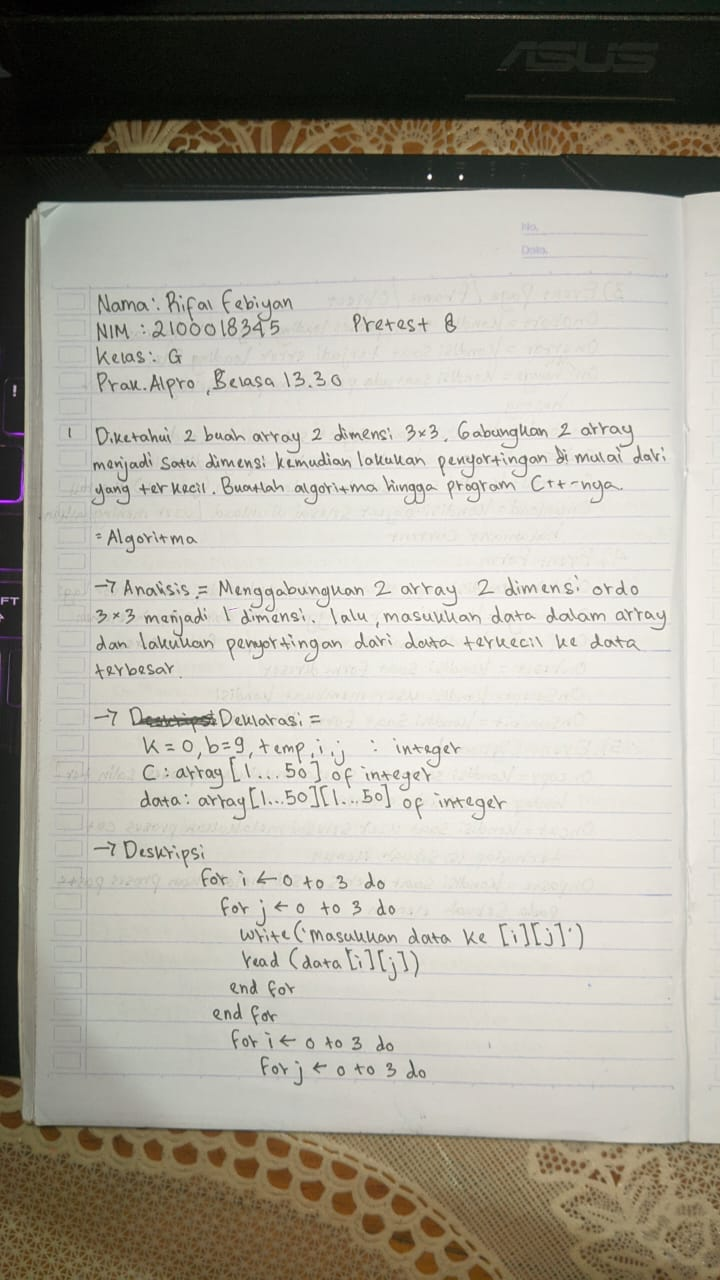 ASUS
No.
Date.
Nama : Rifal Febiyan
NIM : 2100018345 Pretest 8
Kelas : G
Prak. Alpro, Selasa 13.30
1 Diketahui 2 buah array 2 dimensi 3x3. Gabungkan 2 array
menjadi satu dimensi kemudian lakukan penyortingan di mulai dari
yang terkecil. Buatlah algoritma hingga program C++-nya.
= Algoritma
→ Analisis = Menggabungkan 2 array 2 dimensi ordo
3x3 menjadi 1 dimensi. lalu, masukkan data dalam array
dan lakukan penyortingan dari data terkecil ke data
terbesar.
→ Deklarasi =
k = 0, b=9, temp, i, j : integer
C : array [1...50] of integer
data : array [1...50][1...50] of integer
→ Deskripsi
for i ← 0 to 3 do
for j ← 0 to 3 do
write ('masukkan data ke [i][j]')
read (data [i][j])
end for
end for
for i ← 0 to 3 do
for j ← 0 to 3 do